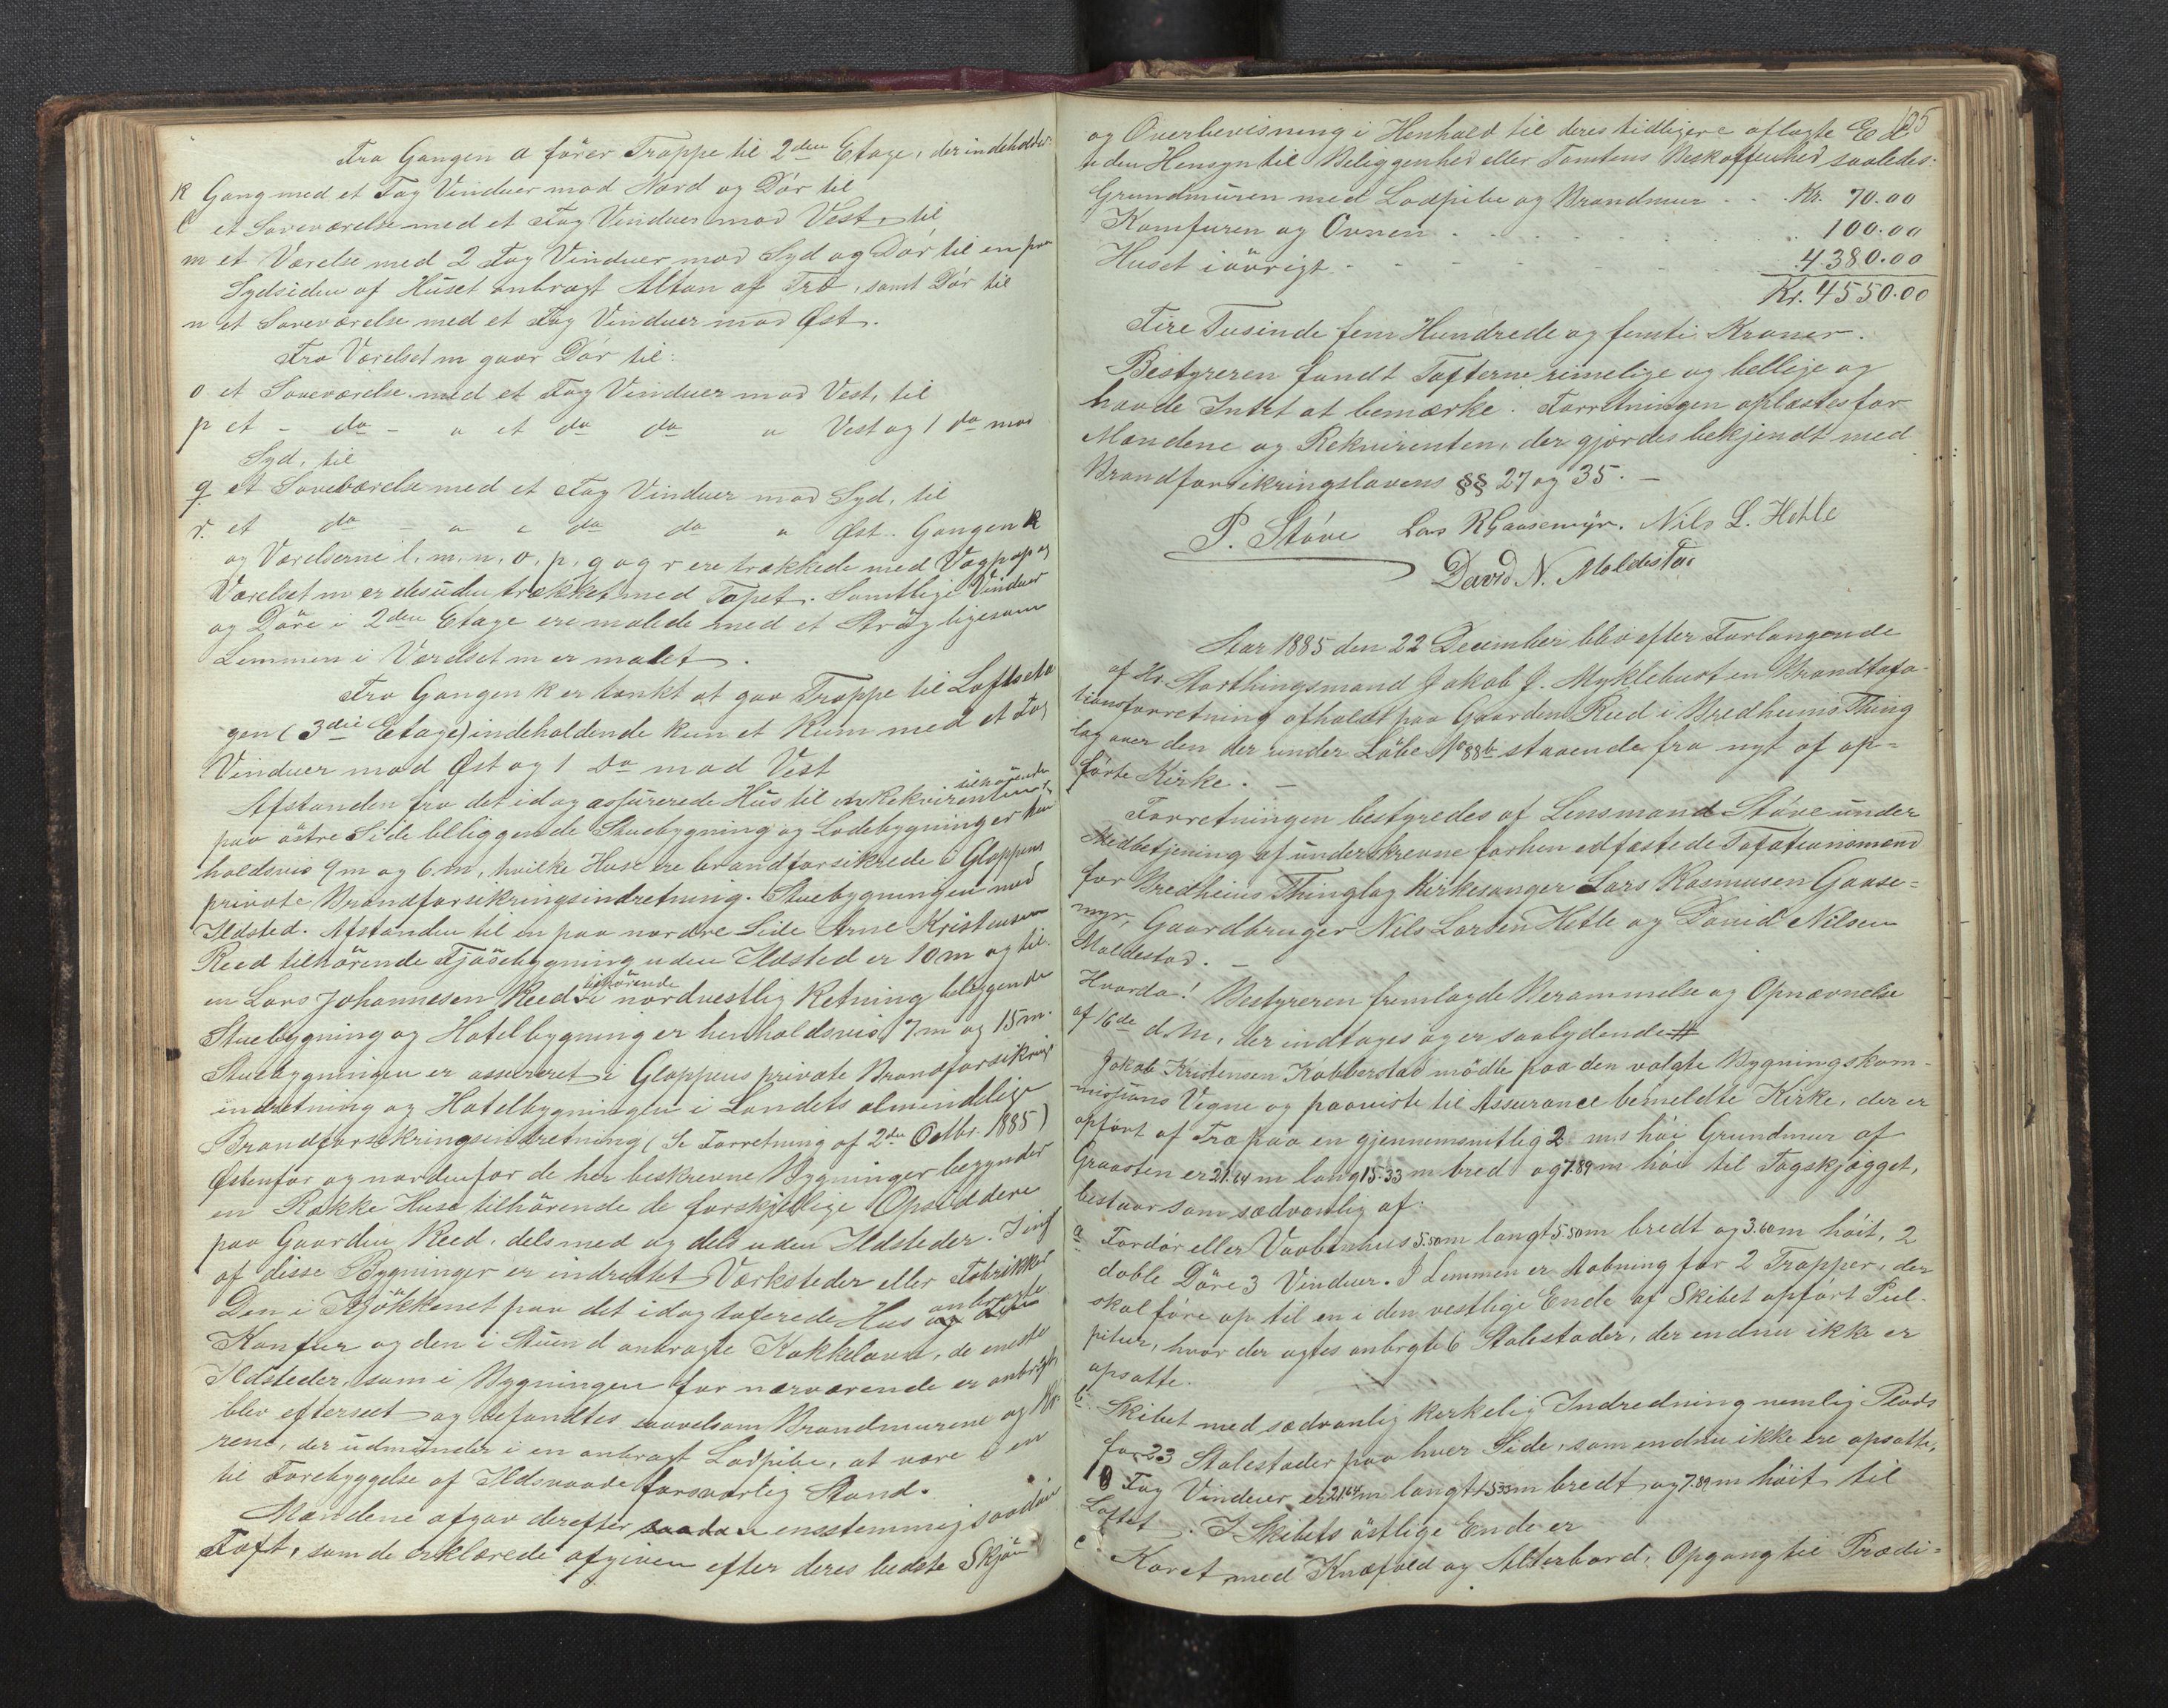 Fra Gangen a förer Trappe til 2den Etage, der indeholder
k Gang med et Fag Vinduer mod Nord og Dör til
l et Soveværelse med et Fag Vinduer mod Vest, til
m et Værelse med 2 Fag Vinduer mod Syd og Dör til en paa
Sydsiden af Huset anbragt Altan af Træ, samt Dör til
n et Soveværelse med et Fag Vinduer mod Øst.
Fra Værelset m gaar Dör til:
o et Soveværelse med et Fag Vinduer mod Vest, til
p et - do - " et do do " Vest og 1 do mod
Syd, til
q et Soveværelse med et Fag Vinduer mod Syd, til
r. et do - " " do do " Øst. Gangen k
og Værelserne l, m, n, o, p, q og r ere trækkede med Vægpap og
Værelset m er desuden trækket med Tapet. Samtlige Vinduer
og Döre i 2den Etage ere malede med et Strög ligesom
Lemmen i Værelset m er malet.
Fra Gangen k er tænkt at gaa Trappe til Loftseta
gen (3die Etage) indeholdende kun et Rum med et Fag
Vinduer mod Øst og 1 do mod Vest
Afstanden fra det idag assurerede Hus til en Rekvirenten tilhörende
paa östre Side beliggende Stuebygning og Ladebygning er hen
holdsvis 9 m og 6 m, hvilke Huse ere brandforsikrede i Gloppens
private Brandforsikringsindretning. Stuebygningen med
Ildsted. Afstanden til en paa nordre Side Arne Kristensen
Reed tilhörende Fjösebygning uden Ildsted er 10 m og til
en Lars Johannesen Reed tilhörende i nordvestlig Retning beliggende
Stuebygning og Hotelbygning er henholdsvis 7 m og 15 m.
Stuebygningen er assureret i Gloppens private Brandforsikrings
indretning og Hotelbygningen i Landets almindelige
Brandforsikringsindretning (Se Forretning af 2den Octbr. 1885)
Østenfor og nordenfor de her beskrevne Bygninger begynder
en Række Huse tilhörende de forskjellige Opsiddere
paa Gaarden Reed, dels med og dels uden Ildsteder. I ingen
af disse Bygninger er indrettet Værksteder eller Fabrikker
Den i Kjökkenet paa det idag taxerede Hus anbragte
Komfur og den i Stuen d anbragte Kakkelovn, de eneste
Ildsteder, som i Bygningen for nærværende er anbragt,
blev efterseet og befandtes saavelsom Brandmurene og Rö
rene, der udmunder i en anbragt Lodpibe, at være i en
til Forebyggelse af Ildsvaade forsvarlig Stand.
Mændene afgav derefter saadan eensstemmig saadan
Taxt, som de erklærede afgiven efter deres bedste Skjön
185
og Overbevisning i Henhold til deres tidligere aflagte Ed
uden Hensyn til Beliggenhed eller Tomtens Beskaffenhed saaledes:
Grundmuren med Lodpibe og Brandmur . . Kr. 70.00
Komfuren og Ovnen . . . 100.00
Huset iövrigt . . . 4380.00
Kr. 4550.00
Fire Tusinde fem Hundrede og femti Kroner.
Bestyreren fandt Taxterne rimelige og billige og
havde Intet at bemærke. Forretningen oplæstes for
Mændene og Rekvirenten, der gjordes bekjendt med
Brandforsikringslovens §§ 27 og 35. -
P. Støve Lars R Gaasemyr. Nils L. Hetle
David N. Moldestad
Aar 1885 den 22 December blev efter Forlangende
af Hr. Storthingsmand Jakob J. Myklebust en Brandtaxa-
tionsforretning afholdt paa Gaarden Reed i Bredheims Thing
lag over den der under Löbe No 88b staaende fra nyt af op-
förte Kirke. -
Forretningen bestyredes af Lensmand Støve under
Medbetjening af underskrevne forhen edfæstede Taxationsmænd
for Bredheims Thinglag Kirkesanger Lars Rasmusen Gaase-
myr, Gaardbruger Nils Larsen Hetle og David Nilsen
Moldestad. -
Hvorda! Bestyreren fremlagde Berammelse og Opnævnelse
af 16de d.M., der indtages og er saalydende #
Jakob Kristensen Kobberstad mödte paa den valgte Bygningskom-
missions Vegne og paaviste til Assurance bemeldte Kirke, der er
opfört af Træ paa en gjennemsnitlig 2 m.s höi Grundmur af
Graasten er 21.64 m lang 15.33 m bred og 7.89 m höi til Tagskjægget,
bestaar som sædvanlig af:
a Fordör eller Vaabenhus 5.50 m langt 5.50 m bredt og 3.60 m höit, 2
doble Döre 3 Vinduer. I Lemmen er Aabning for 2 Trapper, der
skal före op til en i den vestlige Ende af Skibet opfört Pul-
pitur, hvor der agtes anbragte 6 Stolestader, der endnu ikke er
opsatte.
b Skibet med sædvanlig kirkelig Indredning nemlig Plads
for 23 Stolestader paa hver Side, som endnu ikke ere opsatte,
10 Fag Vinduer er 21.64 m langt 15.33 m bredt og 7.89 m höit til
Loftet. I Skibets östlige Ende er
c Koret med Knæfald og Alterbord, Opgang til Prædi-